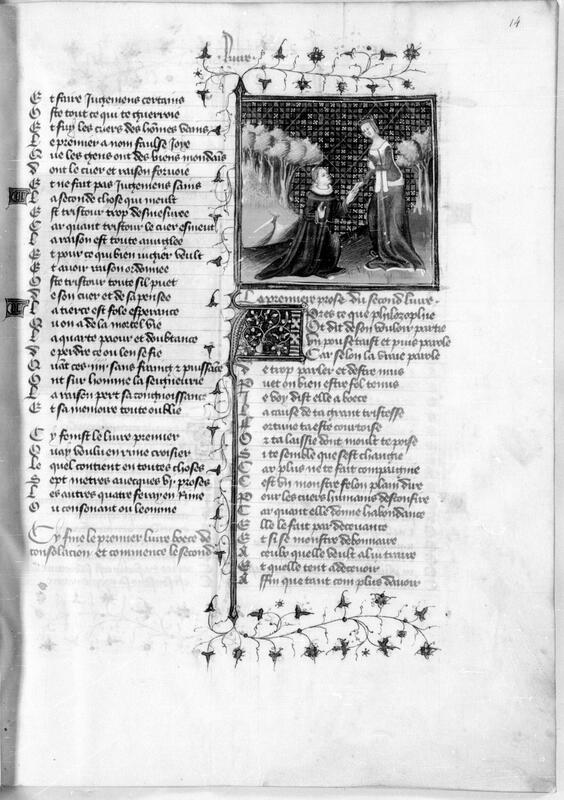 14
Livre
Et faire Jugemens certains
Oste tout ce qui te guerroie
Et fuy les cuers des homes vains
Le premier a nom faulse Joye
Que les gens ont des biens mondais
Dont le cuer et raison forvoie
Et ne fait pas Jugemens sains
La seconde chose qui meult
Est tristour trop desmesuree
Car quant tristour le cuer esmeut
La raison est toute aveuglee
Et pour ce qui bien jugier veult
Et avoir raison ordonnee
Oste tristour toute sil puet
De son cuer et de sa pensee
La tierce est fole esperance
Quon a de la mortel vie
La quarte paour et doubtance
De perdre ce ou len se fie
Quāt ces iiij sans frainq̄ et puissāce
Ont sur homme la seigneurie
La raison pert sa congnoissance
Et sa memoire toute oublie
Cy fenist le livre premier
Quay voulu en rime croisier
Le quel contient en toutes choses
Sept metres avecques vj proses
Les autres quatre feray en Rime
Ou consonant ou leonime
Cy fine le premier livre boece de
consolacion et commence le second
La premiere prose du second livre
Apres ce que philozophie
Ot dit de son vouloir partie
Un pou se taist et puis parole
Car selon la vraie parole
De trop parler et destre mus
Puet on bien estre fol tenus
Je voy dist elle a boece
La cause de ta grant tristesse
Fortune ta este courtoise
Or ta laissie dont moult te poise
Si te semble que sest changie
Car plus ne te fait compaignie
Cest un monstre felon plain dire
Pour les cuers humains desconfire
Car quant elle donne habondance
Elle le fait par decevance
Et si se monstre debonnaire
A ceulx quelle veult a lui traire
Et quelle tent a decevoir
Affin que tant com plus davoir